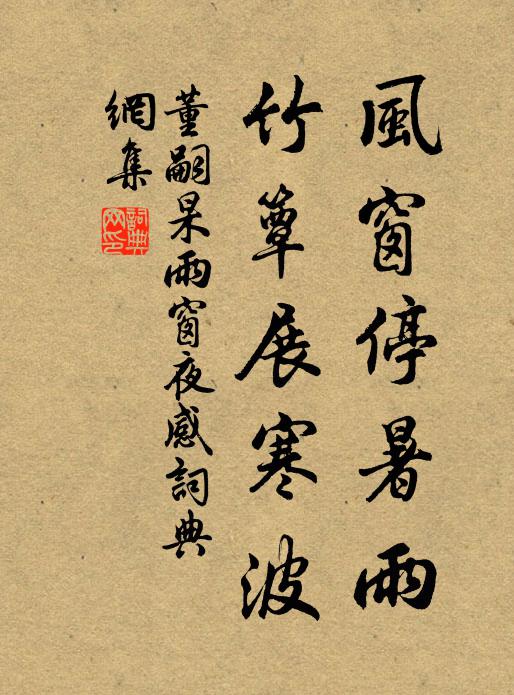 風窗停暑雨
竹簟展寒波
董嗣杲雨窗夜感詞典
網集
詞典網印